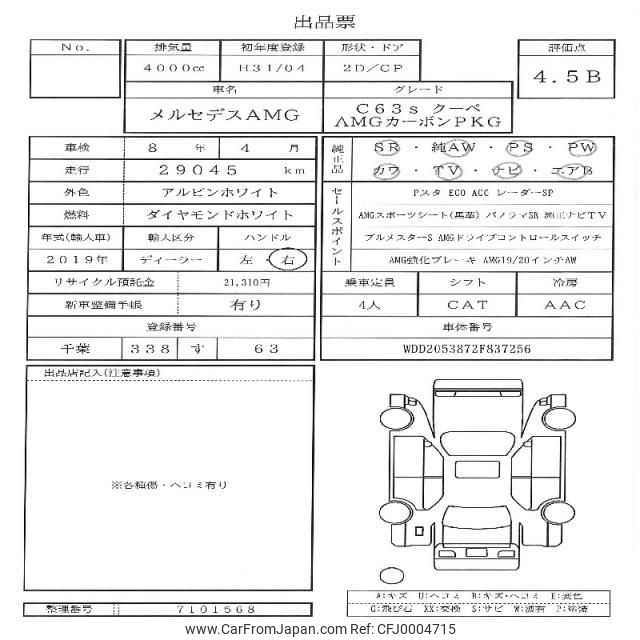 出品票
No.
排気量 初年度登録 形状・ドア
4000cc H31/04 2D/CP
評価点
4.5B
車名 グレード
メルセデスAMG
C63s クーペ
AMGカーボンPKG
車検 8 年 4 月
走行 29045 km
外色 アルビンホワイト
燃料 ダイヤモンドホワイト
年式(輸入車) 輸入区分 ハンドル
2019年 ディーラー 左・右
リサイクル預託金 21,310円
新車整備手帳 有り
登録番号
千葉 338 す 63
純正品
SR・純AW・PS・PW
カワ・TV・ナビ・エアB
セールスポイント
Pスタ ECO ACC レーダーSP
AMGスポーツシート(黒革) パノラマSR 純正ナビTV
ブルメスターS AMGドライブコントロールスイッチ
AMG強化ブレーキ AMG19/20インチAW
乗車定員 シフト 冷房
4人 CAT AAC
車体番号
WDD2053872F837256
出品店記入(注意事項)
※各種傷・ヘコミ有り
A:キズ U:ヘコミ B:キズ・ヘコミ E:変色
G:飛び石 XX:交換 S:サビ W:波有 P:塗装
整理番号 7101568
www.CarFromJapan.com CFJ0004715